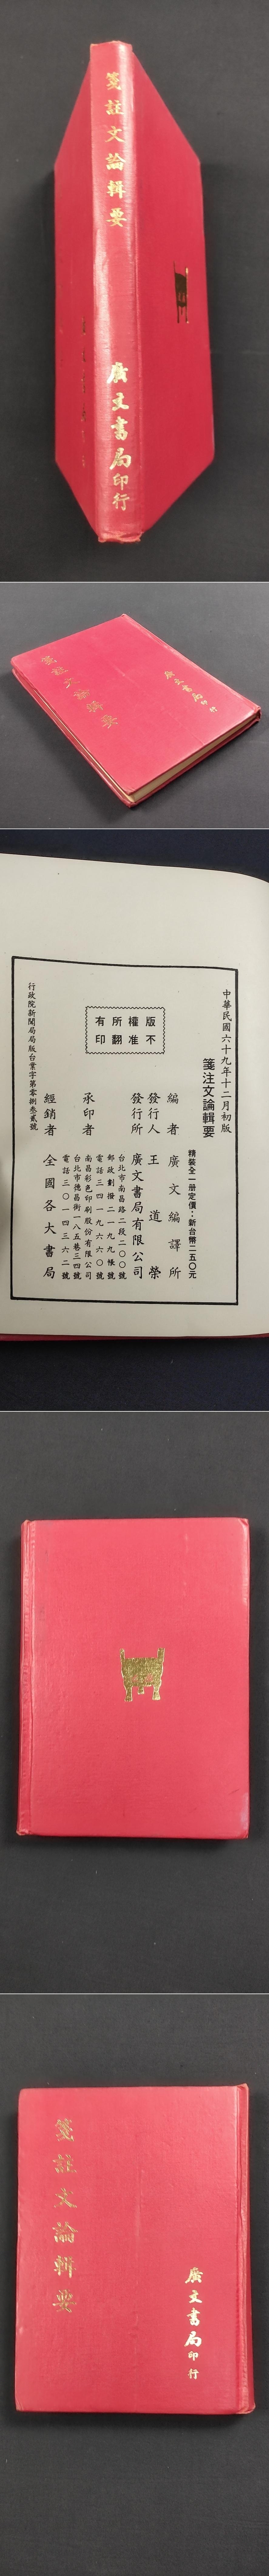 箋註文論輯要
廣文書局印行
箋註文論輯要
廣文書局印行
中華民國六十九年十二月初版
箋注文論輯要
精裝全一册定價：新台幣二五〇元
編者 廣文編譯所
發行人 王道榮
發行所 廣文書局有限公司
台北市南昌路二段二〇〇號
郵政劃撥二一九九帳號
電話三四一九一六六〇號
承印者 南昌彩色印刷股份有限公司
台北市德昌街一八五巷三四號
電話三〇一四三六二號
經銷者 全國各大書局
行政院新聞局局版台業字第零捌叁貳號
版權所有
不准翻印
箋註文論輯要
廣文書局印行